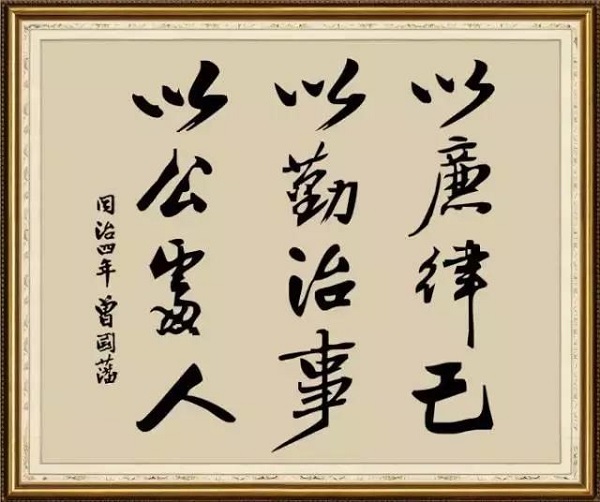 以廉律己
以勤治事
以公處人
同治四年曾国藩